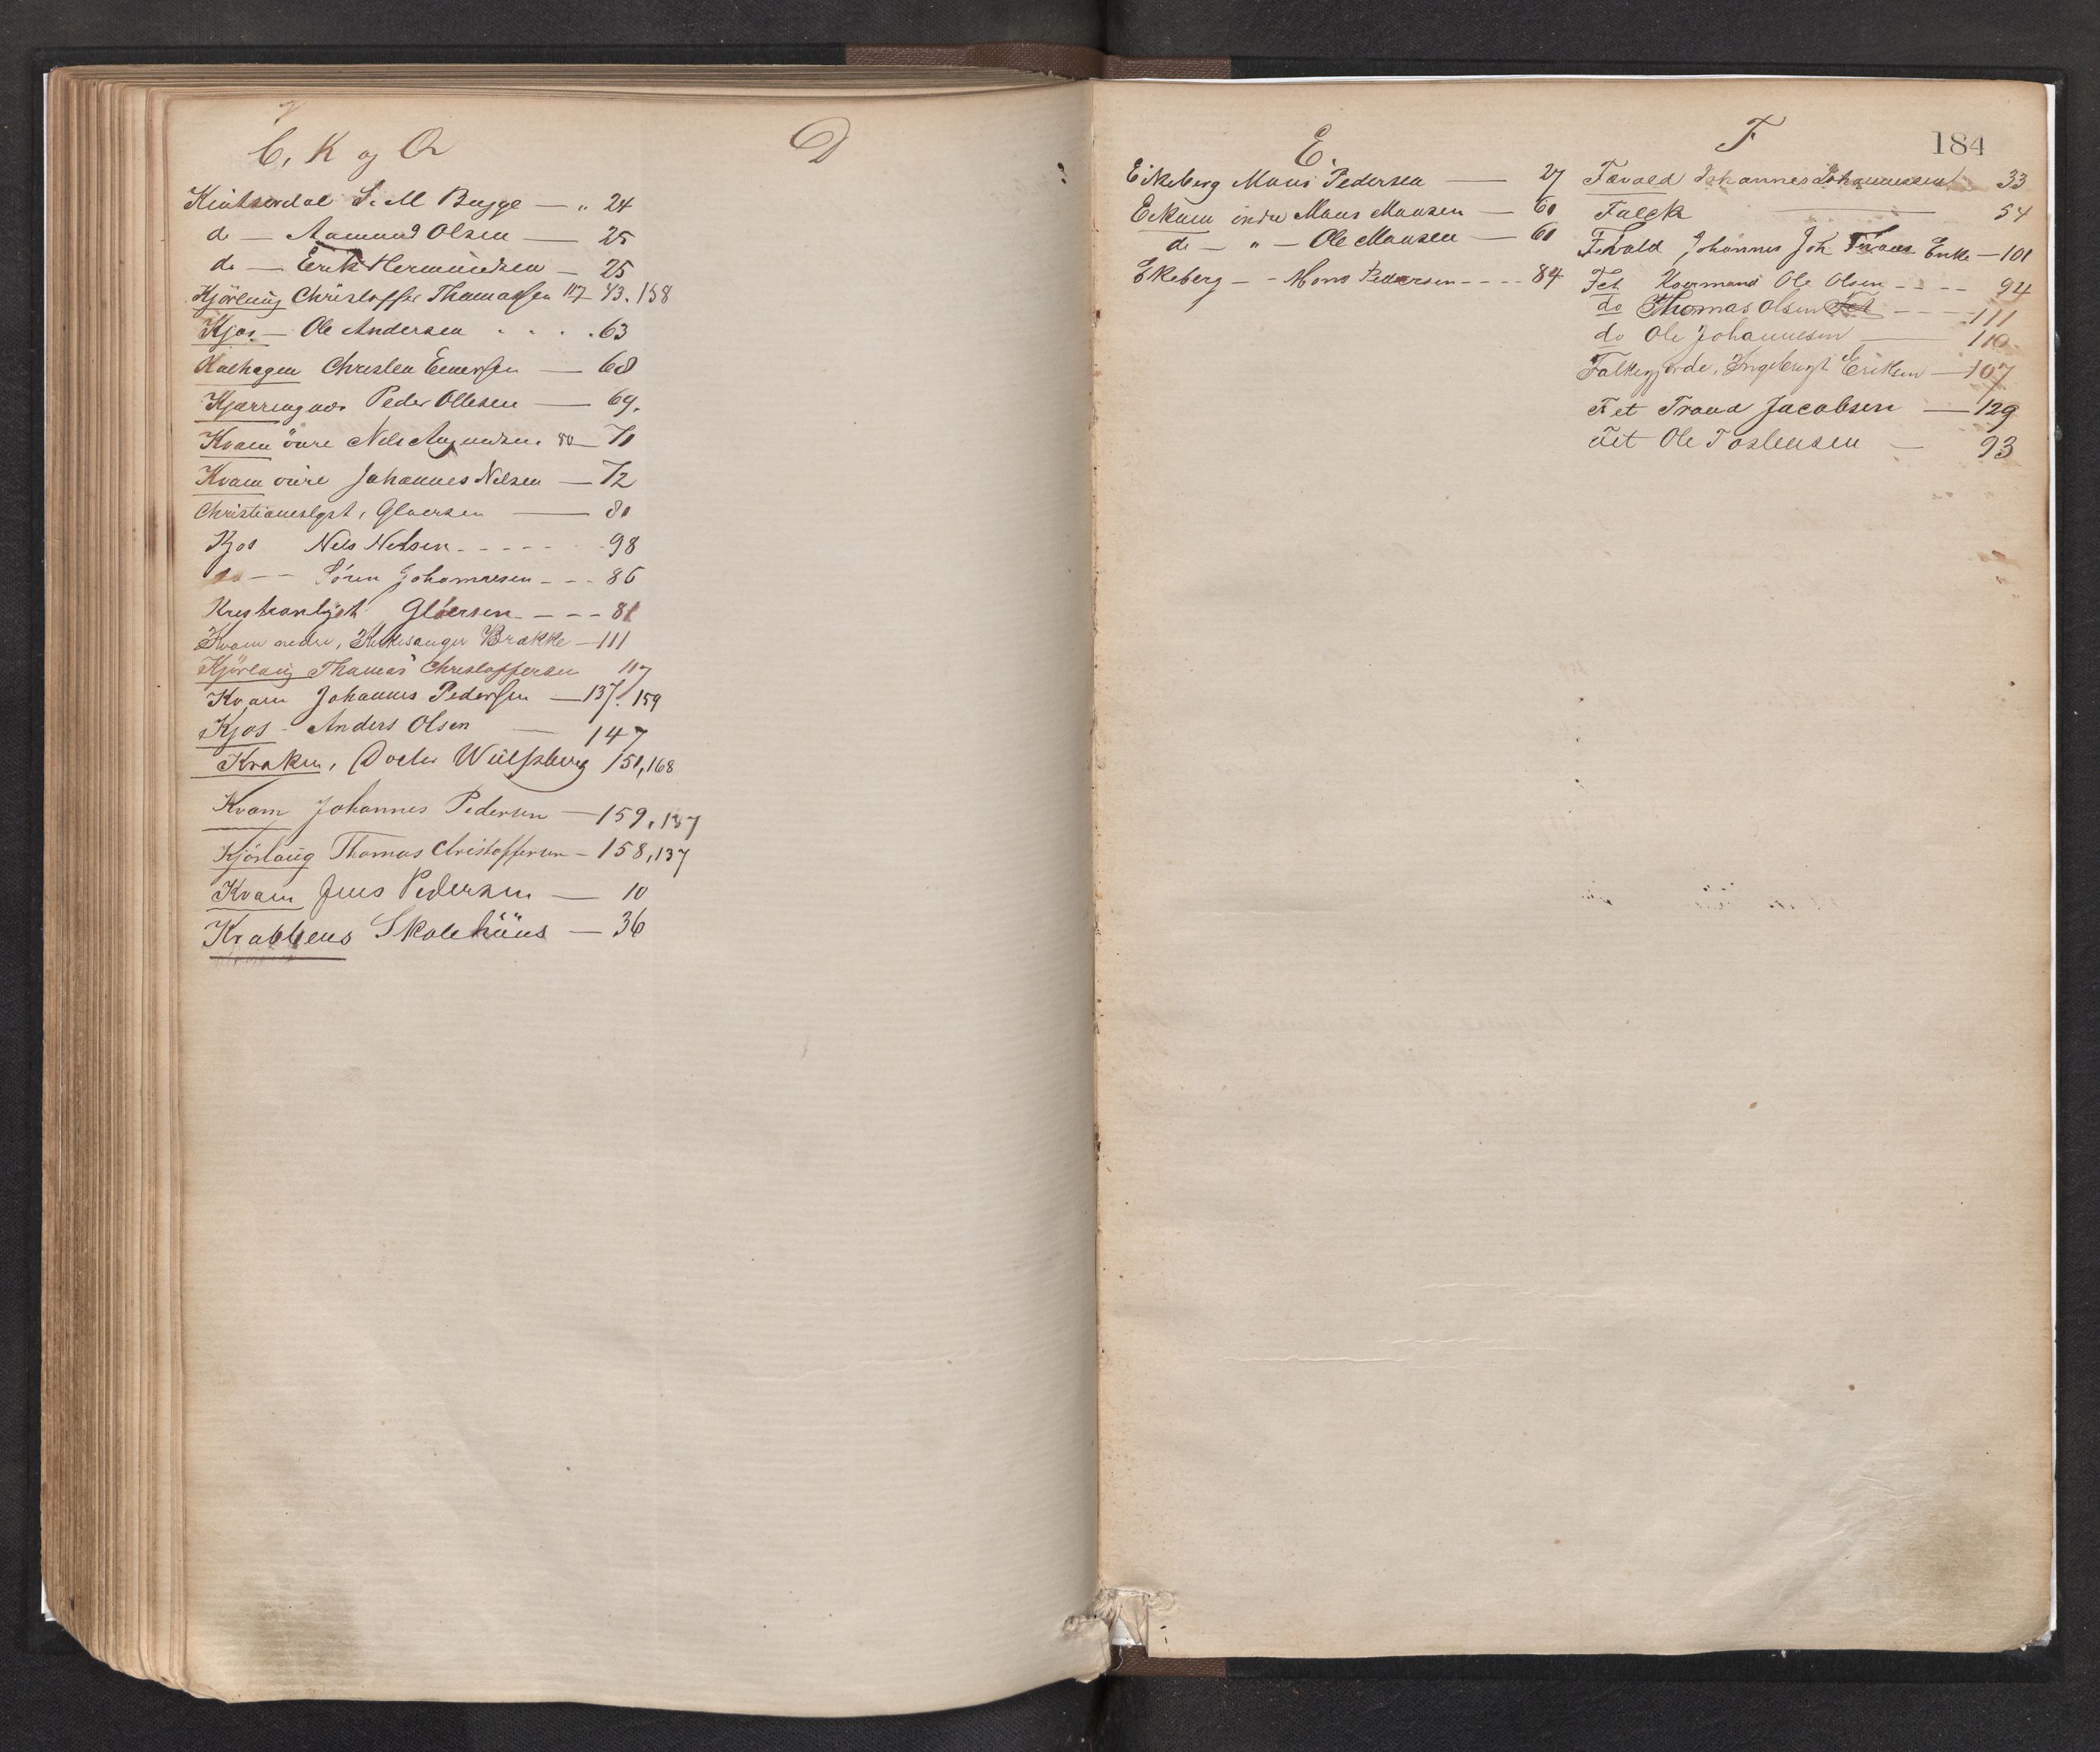 C, K og Q
Kintserdal S. M Bugge — „ 24
do — Aamund Olsen — 25
do — Erik Hermundsen — 25
Kjörlaug Christoffer Thomassen 117 43. 158
Kjos — Ole Andersen . . . . 63
Kalhagen Christen Einersen — 68
Kjærringnæs Peder Ollesen — 69.
Kvam övre Nels Amundsen 50 — 71
Kvam övre Johannes Nilsen — 72
Christianslyst, Gloersen — 81
Kjos Nels Nelsen - - - - - 98
do — Sören Johannesen - - - 86
Kristianlyst Gloersen - - - 81
Kvam nedre, Kirkesanger Brække — 111
Kjörlaug Thomas Christoffersen 117
Kvam Johannes Pedersen — 137. 159
Kjos - Anders Olsen — 147
Kraken, Doctor Wülfsberg 151, 168
Kvam Johannes Pedersen — 159, 137
Kjörlaug Thomas Christoffersen — 158, 137
Kvam Jens Pedersen — 10
Krabbens Skolehüus — 36
D
E.
Eikeberg Mons Pedersen — 27
Eckum indre Mons Monsen — 61
do — „ — Ole Monsen — 61
Ekeberg — - Mons Pedersen - - - - 84
F
184
Tævold Johannes Johannesen 33
Falck — 54
Fevold Johannes Joh Enke — 101
Fet Korsmand Ole Olsen - - - - 94
do Thomas Olsen Fet - - - - 111
do Ole Johannesen — 110
Falkegjerde, Ingebrigt Eriksen — 107
Fet Trond Jacobsen — 129
Fet Ole Tostensen — 93